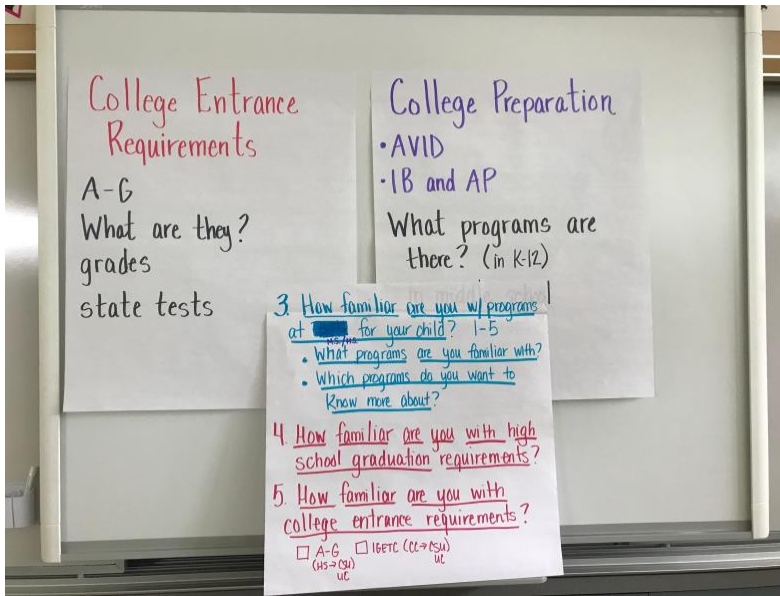 College Entrance
Requirements
A-G
What are they?
grades
state tests
College Preparation
•AVID
•IB and AP
What programs are
there? (in K-12)
3. How familiar are you w/ programs
at for your child? 1-5
MS/HS
• What programs are you familiar with?
• Which programs do you want to
know more about?
4. How familiar are you with high
school graduation requirements?
5. How familiar are you with
college entrance requirements?
□ A-G □ IGETC (CC→CSU)
(HS→CSU) UC
UC